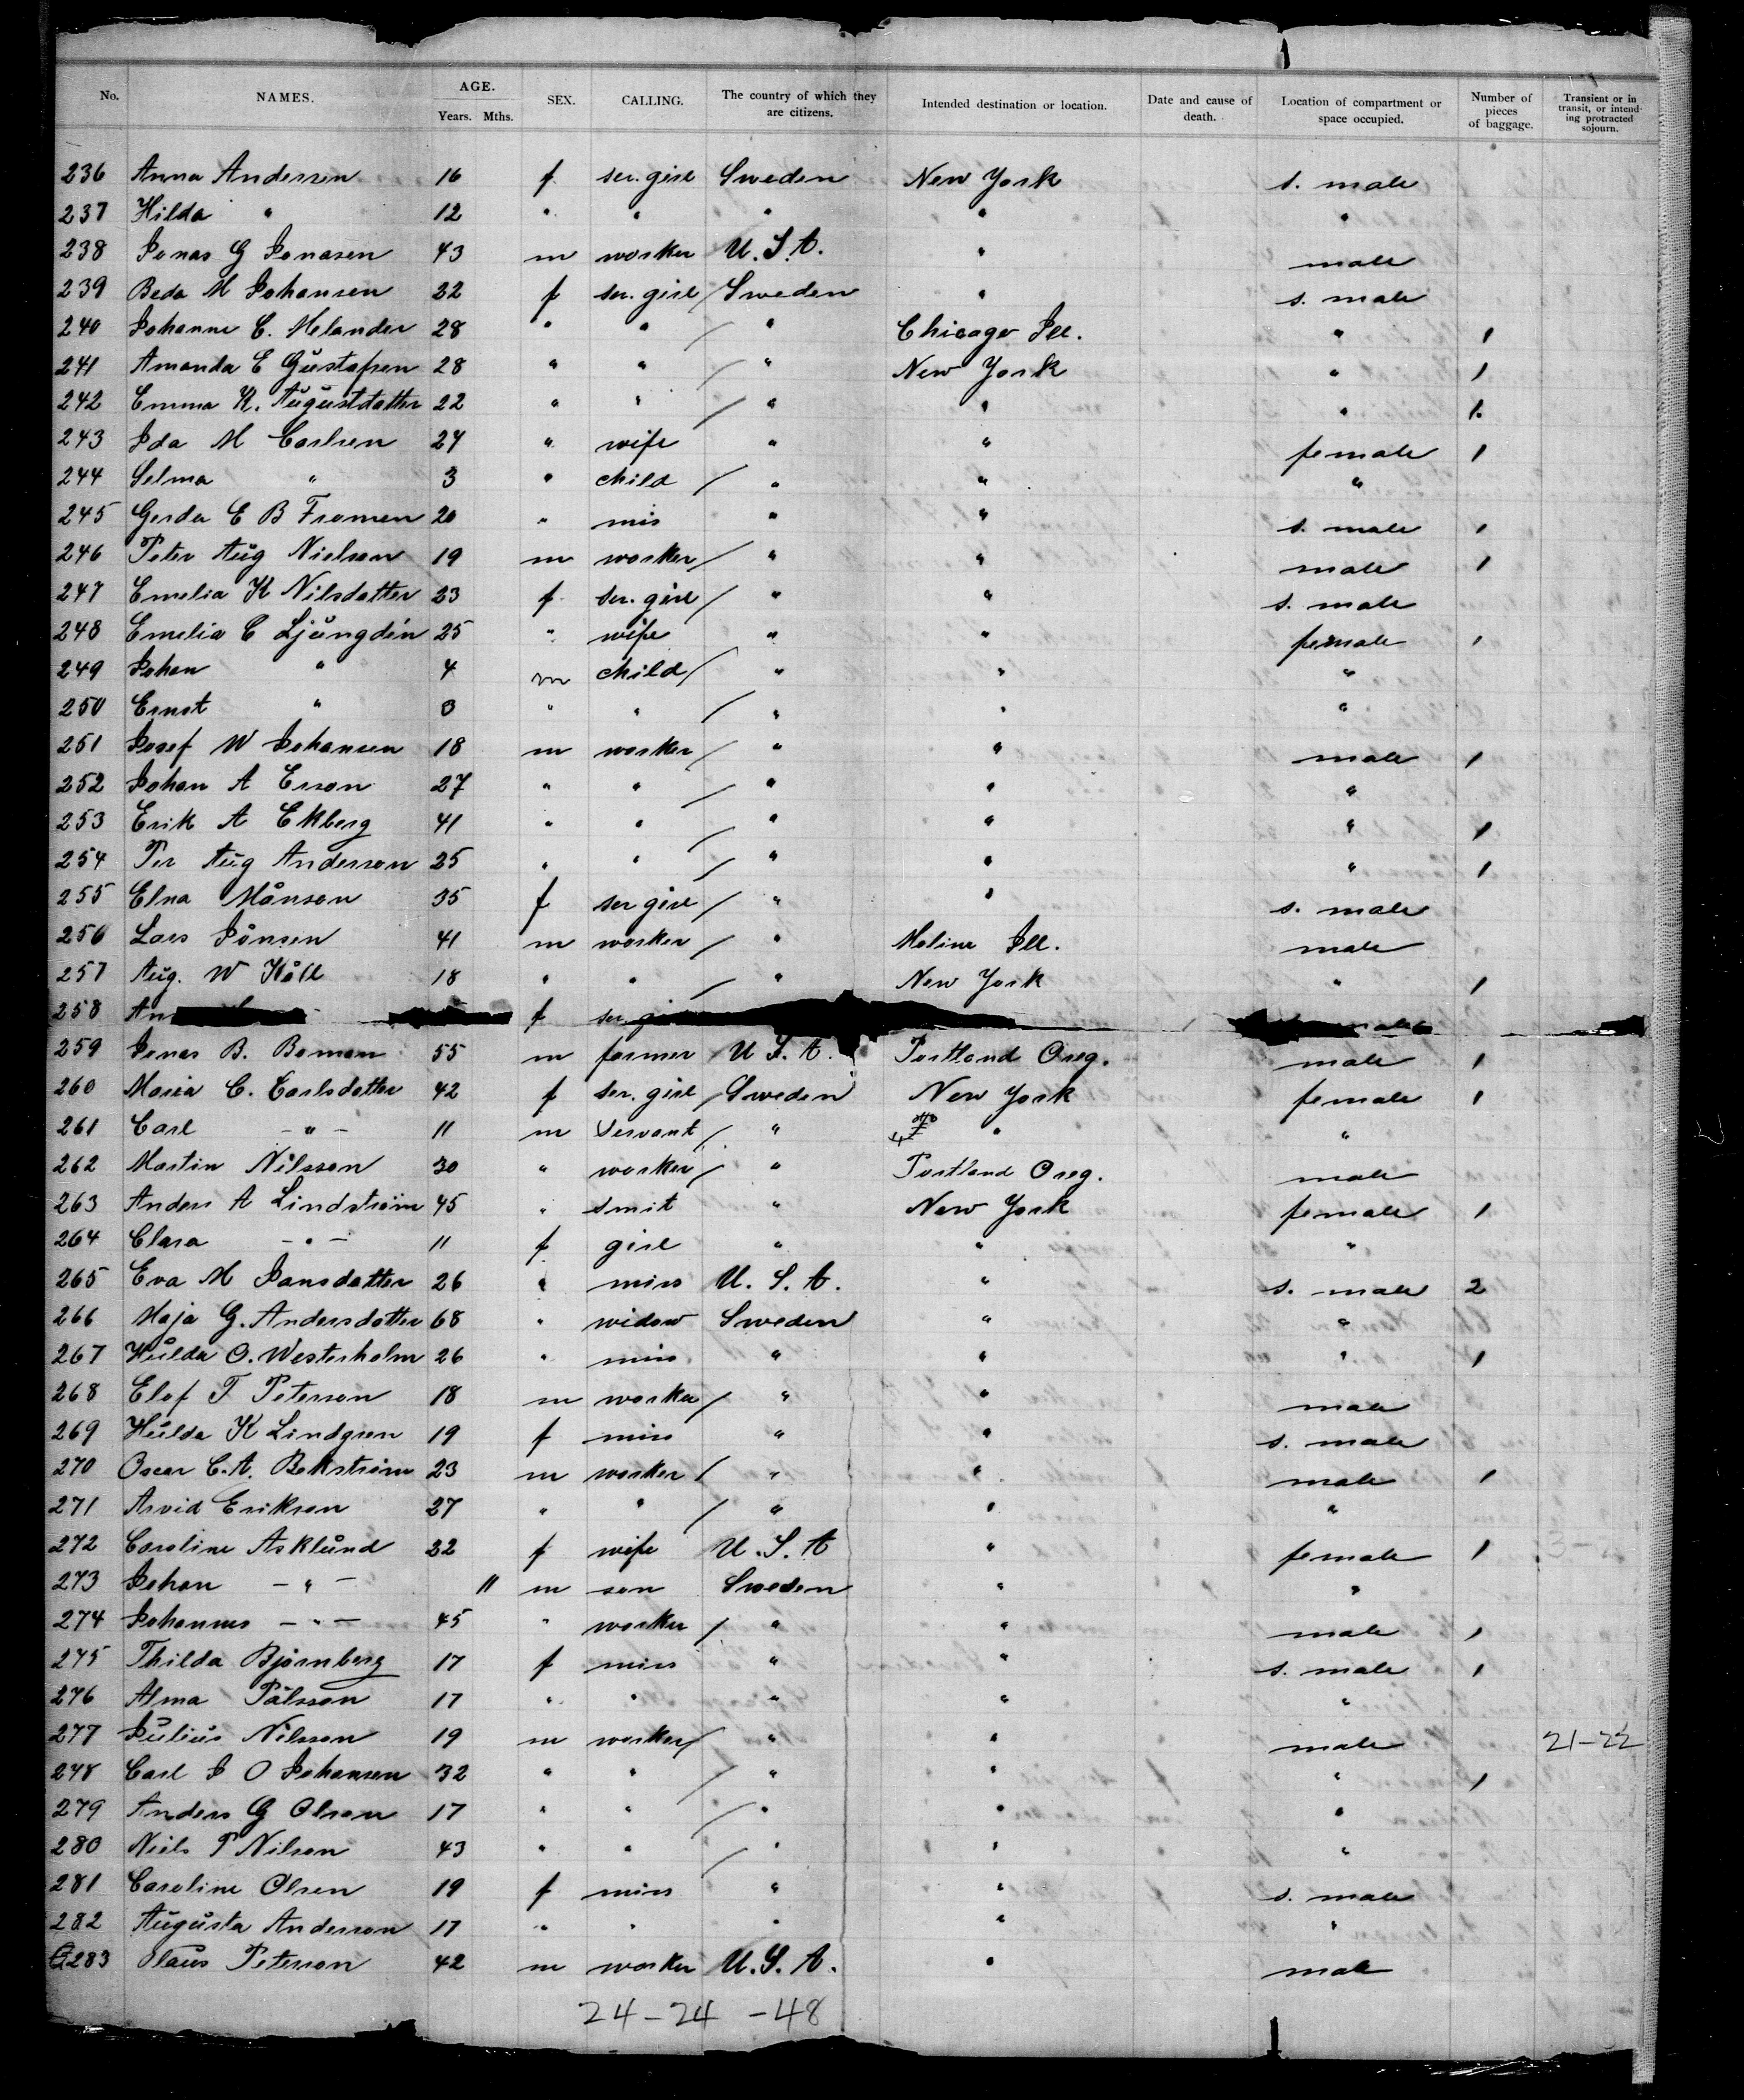 No. NAMES. AGE. Years. Mths. SEX. CALLING. The country of which they are citizens. Intended destination or location. Date and cause of death. Location of compartment or space occupied. Number of pieces of baggage. Transient or in transit, or intending protracted sojourn.
236 Anna Andersen 16 f ser. girl Sweden New York s. male
237 Hilda " 12 " " " " "
238 Jonas G Jonasen 43 m worker U.S.A. " male
239 Beda M Johansen 22 f ser. girl / Sweden " s. male
240 Johanne C. Melander 28 " " / " Chicago Ill. " 1
241 Amanda E Gustafsen 28 " " / " New York " 1
242 Emma K. Augustdotter 22 " " / " " " 1
243 Ida M Carlsen 24 " wife " " female 1
244 Selma " 3 " child / " " "
245 Gerda E B Fromen 20 " mis " " s. male 1
246 Peter Aug Nielson 19 m worker / " " male 1
247 Emelia K Nilsdotter 23 f ser. girl / " " s. male
248 Emelia C Ljungdén 25 " wife " " female 1
249 Johan " 4 m child / " " "
250 Ernst " 3 " " / " " "
251 Josef W Johansen 18 m worker / " " male 1
252 Johan A Erson 27 " " / " " "
253 Erik A Ekberg 41 " " / " " " 1
254 Per Aug Anderson 25 " " / " " " 1
255 Elna Månson 35 f ser girl / " " s. male
256 Lars Jönsen 41 m worker / " Moline Ill. male
257 Aug. W Håll 18 " " / " New York " 1
258 An f ser. male
259 Jonas B. Boman 55 m farmer U.S.A. Portland Oreg. male 1
260 Maria C. Carlsdotter 42 f ser. girl / Sweden New York female 1
261 Carl -"- 11 m servant / " " "
262 Martin Nilsson 30 " worker / " Portland Oreg. male
263 Anders A Lindström 45 " smit " New York female 1
264 Clara -"- 11 f girl " " "
265 Eva M Jansdotter 26 " miss U.S.A. " s. male 2
266 Maja G. Andersdotter 68 " widow Sweden " "
267 Hulda O. Westerholm 26 " miss " " " 1
268 Elof F Peterson 18 m worker / " " male
269 Hulda K Lindgren 19 f miss " " s. male
270 Oscar C.A. Bekström 23 m worker / " " male 1
271 Arvid Erikson 27 " " / " " "
272 Caroline Asklund 22 f wife U.S.A " female 1
273 Johan -"- 11 m son Sweden " "
274 Johannes -"- 45 " worker / " " male 1
275 Thilda Bjørnberg 17 f miss " " s. male 1
276 Alma Pålsson 17 " " " " "
277 Julius Nilsson 19 m worker / " " male 21-22
278 Carl J O Johansen 32 " " / " " " 1
279 Anders G Olson 17 " " / " " "
280 Niels P Nilson 43 " " / " " "
281 Caroline Olsen 19 f miss " " s. male
282 Augusta Anderson 17 " " " " "
283 Claus Peterson 42 m worker U.S.A. " male
24-24 -48